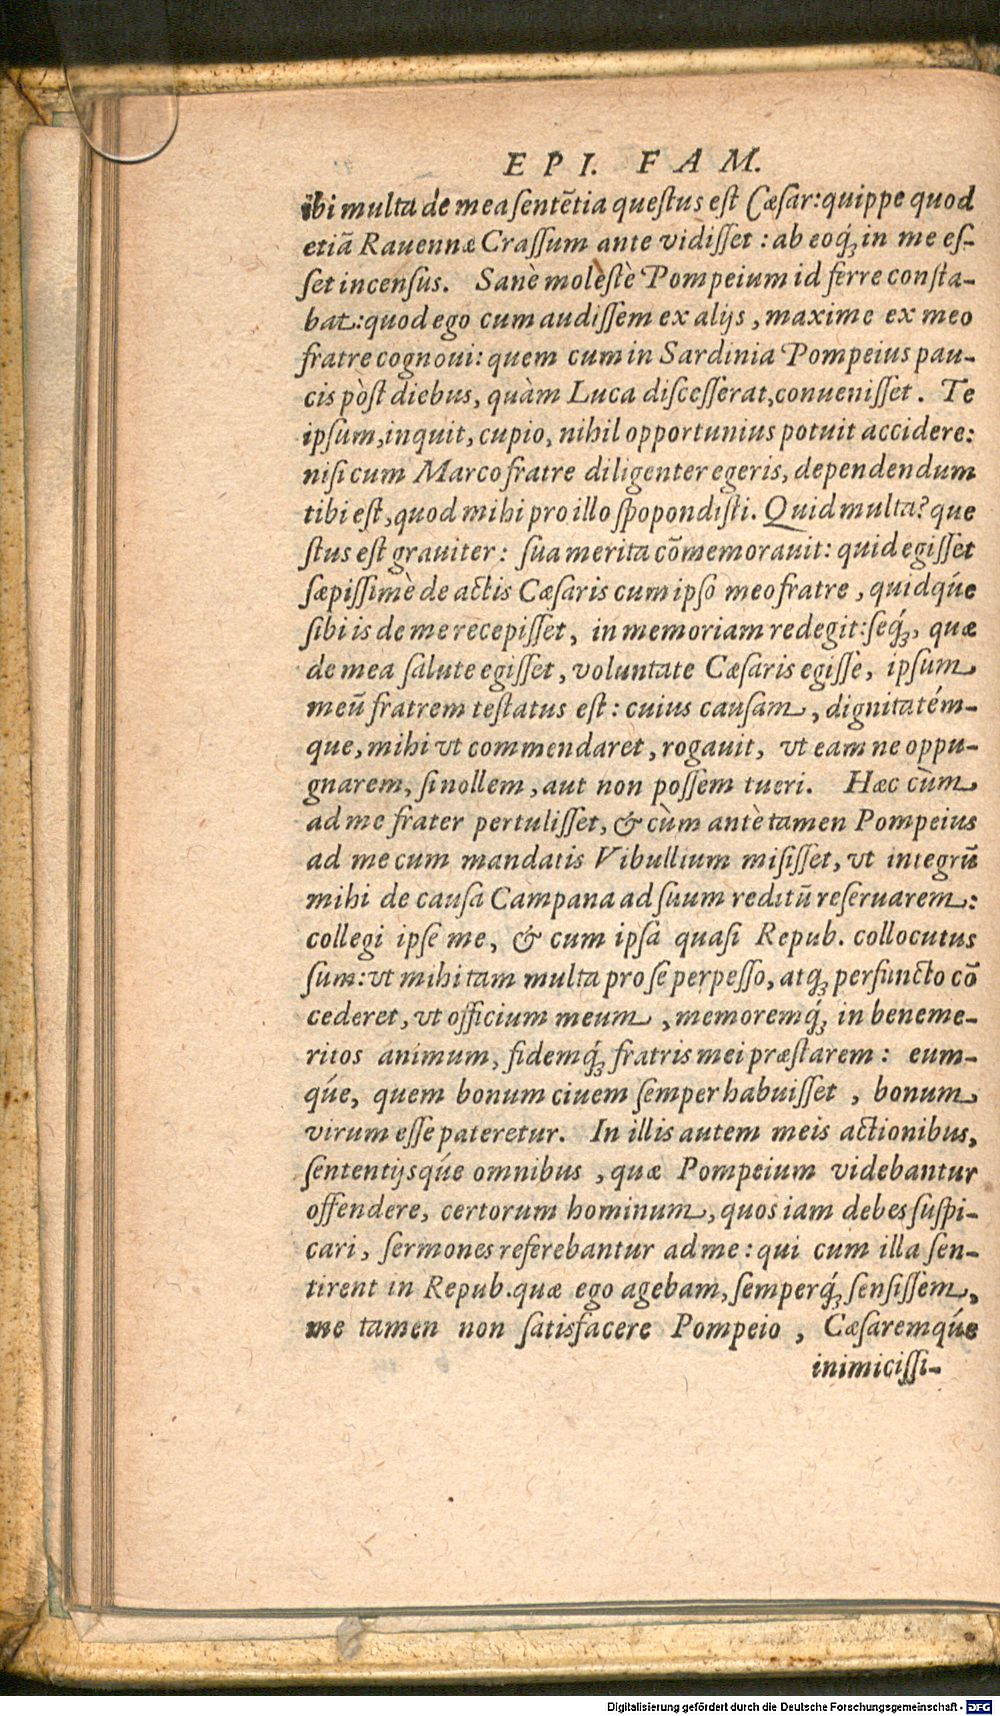 EPI. FAM.
ibi multa de mea sentētia questus est Cæsar: quippe quod
etiā Rauennæ Crassum ante vidisset: ab eoq́; in me es-
set incensus. Sanè molestè Pompeium id ferre consta-
bat: quod ego cum audissem ex alijs, maxime ex meo
fratre cognoui: quem cum in Sardinia Pompeius pau-
cis pòst diebus, quàm Luca discesserat, conuenisset. Te
ipsum, inquit, cupio, nihil opportunius potuit accidere:
nisi cum Marco fratre diligenter egeris, dependendum
tibi est, quod mihi pro illo spopondisti. Quid multa? que
stus est grauiter: sua merita cōmemorauit: quid egisset
sæpissimè de actis Cæsaris cum ipso meo fratre, quidq́ue
sibi is de me recepisset, in memoriam redegit: seq́;, quæ
de mea salute egisset, voluntate Cæsaris egisse, ipsum
meū fratrem testatus est: cuius causam, dignitatém-
que, mihi vt commendaret, rogauit, vt eam ne oppu-
gnarem, si nollem, aut non possem tueri. Hæc cùm
ad me frater pertulisset, & cùm antè tamen Pompeius
ad me cum mandatis Vibullium misisset, vt integrū
mihi de causa Campana ad suum reditū reseruarem:
collegi ipse me, & cum ipsa quasi Repub. collocutus
sum: vt mihi tam multa pro se perpesso, atq; perfuncto cō
cederet, vt officium meum, memoremq́; in beneme-
ritos animum, fidemq́; fratris mei præstarem: eum-
q́ue, quem bonum ciuem semper habuisset, bonum
virum esse pateretur. In illis autem meis actionibus,
sententijsq́ue omnibus, quæ Pompeium videbantur
offendere, certorum hominum, quos iam debes suspi-
cari, sermones referebantur ad me: qui cum illa sen-
tirent in Repub. quæ ego agebam, semperq́; sensissem,
me tamen non satisfacere Pompeio, Cæsaremq́ue
inimicissi-
Digitalisierung gefördert durch die Deutsche Forschungsgemeinschaft - DFG